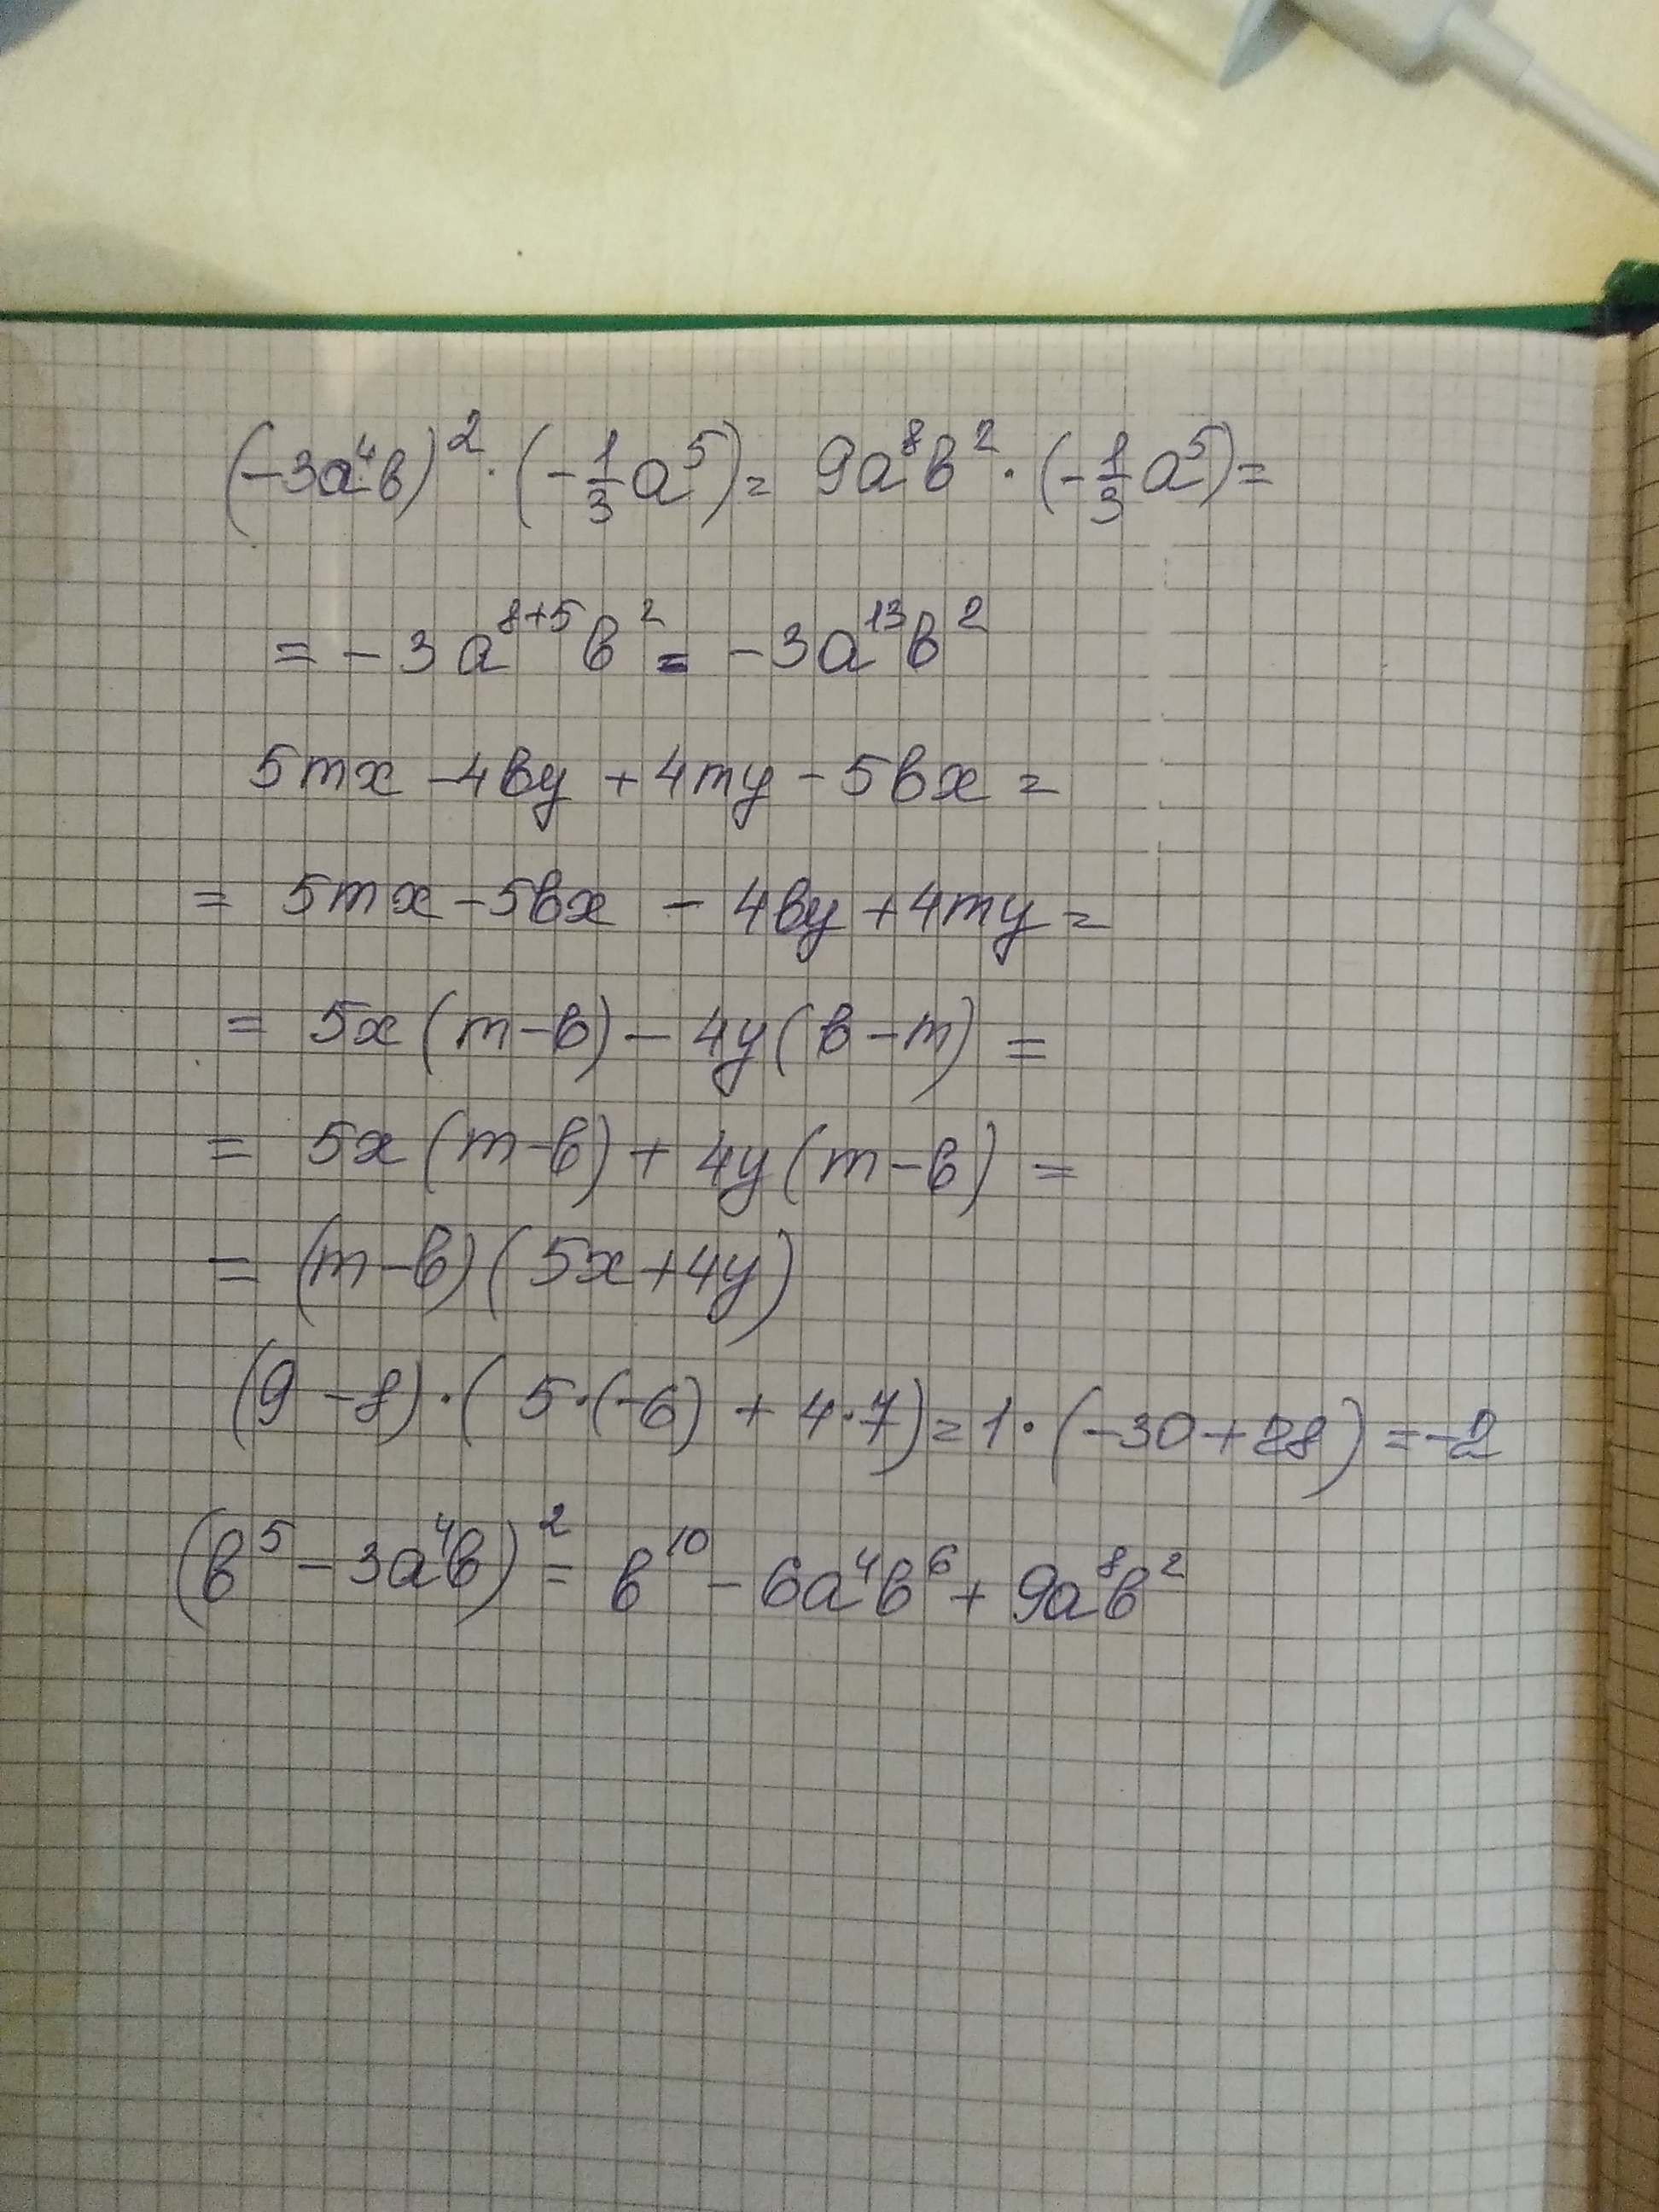 (-3a⁴b)² · (-1/3 a⁵) = 9a⁸b² · (-1/3 a⁵) =
= -3a⁸⁺⁵b² = -3a¹³b²
5mx - 4by + 4my - 5bx =
= 5mx - 5bx - 4by + 4my =
= 5x(m-b) - 4y(b-m) =
= 5x(m-b) + 4y(m-b) =
= (m-b)(5x+4y)
(9-8)·(5·(-6) + 4·7) = 1·(-30+28) = -2
(b⁵ - 3a⁴b)² = b¹⁰ - 6a⁴b⁶ + 9a⁸b²